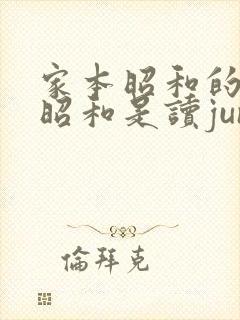 家本昭和的
昭和是讀jun
倫拜克